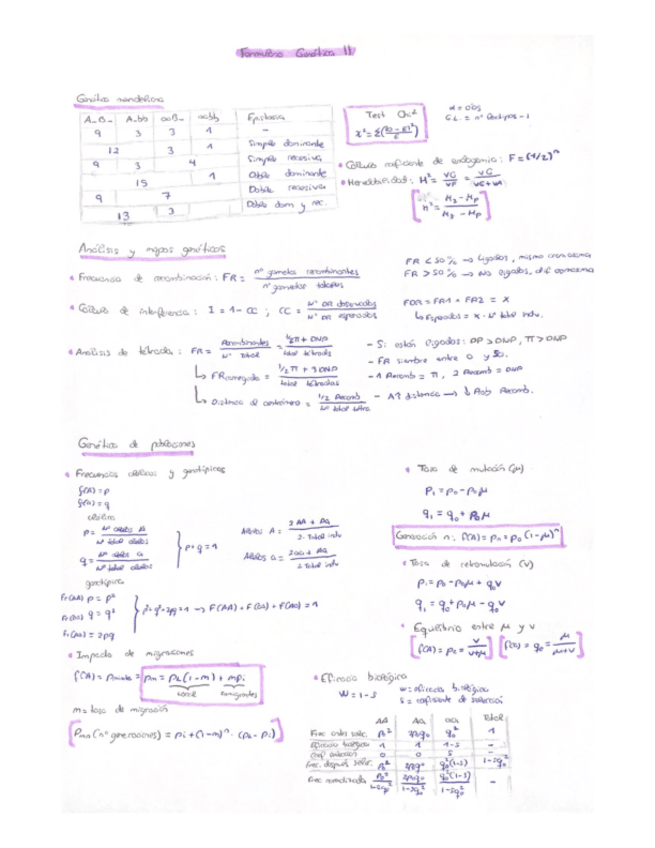 Formulario Genética II
Genética mendeliana
A_B_ A_bb aaB_ aabb Epistasia
9 3 3 1 -
12 3 1 Simple dominante
9 3 4 Simple recesiva
15 1 Doble dominante
9 7 Doble recesiva
13 3 Doble dom y rec.
Test Chi²
χ² = Σ (O-E)² / E
α = 0'05
G.L. = nº fenotipos - 1
Cálculo coeficiente de endogamia: F = (1/2)ⁿ
Heredabilidad: H² = VG/VF = VG/(VG+VA)
Análisis y mapas genéticos
Frecuencia de recombinación: FR = nº gametos recombinantes / nº gametos totales
FR < 50% → Ligados, mismo cromosoma
FR > 50% → No ligados, dif cromosoma
Cálculo de interferencia: I = 1 - CC ; CC = Nº DR observados / Nº DR esperados
FDR = FR1 · FR2 = X
↳ Esperados = X · Nº total indv.
Análisis de tétrada: FR = Recombinantes / Nº total = (1/2 TT + DNP) / total tétrada
- Si están ligados: DP > DNP, TT > DNP
- FR siempre entre 0 y 50.
↳ FR corregida = (1/2 TT + 3 DNP) / total tétradas
- 1 Recomb = TT, 2 Recomb = DNP
↳ Distancia al centrómero = 1/2 Recomb / Nº total tétra
- A↑ distancia → ↓ Prob Recomb.
Genética de poblaciones
Frecuencias alélicas y genotípicas
f(A) = p
f(a) = q
alélica
p = Nº alelos A / Nº total alelos
q = Nº alelos a / Nº total alelos
p + q = 1
Alelos A = (2AA + Aa) / (2 · Total indv)
Alelos a = (2aa + Aa) / (2 Total indv)
genotípica
Fr(AA) p = p²
q = q²
= 2pq
p² + q² + 2pq = 1 →
Impacto de migraciones
= pm = pr(1-m) + mpi
m = tasa de migración
(nº generaciones) = pi + (1-m)ⁿ · (p₀ - pi)
Tasa de mutación (μ)
p₁ = p₀ - p₀μ
q₁ = q₀ + p₀μ
Generación n: f(A) = pn = p₀(1-μ)ⁿ
Tasa de retromutación (v)
p₁ = p₀ - p₀μ + q₀v
q₁ = q₀ + p₀μ - q₀v
Equilibrio entre μ y v
f(A) = pe = v/(v+μ)
= μ/(μ+v)
Eficacia biológica
W = 1 - s
w = eficacia biológica
s = coeficiente de selección
AA Aa aa Total
Frec antes selec. p₀² 2p₀q₀ q₀² 1
Eficacia biológica 1 1 1-s -
Coef selección 0 0 s -
Frec. después selec. p₀² 2p₀q₀ q₀²(1-s) 1-sq₀²
Frec normalizada p₀²/1-sq₀² 2p₀q₀/1-sq₀² q₀²(1-s)/1-sq₀² -